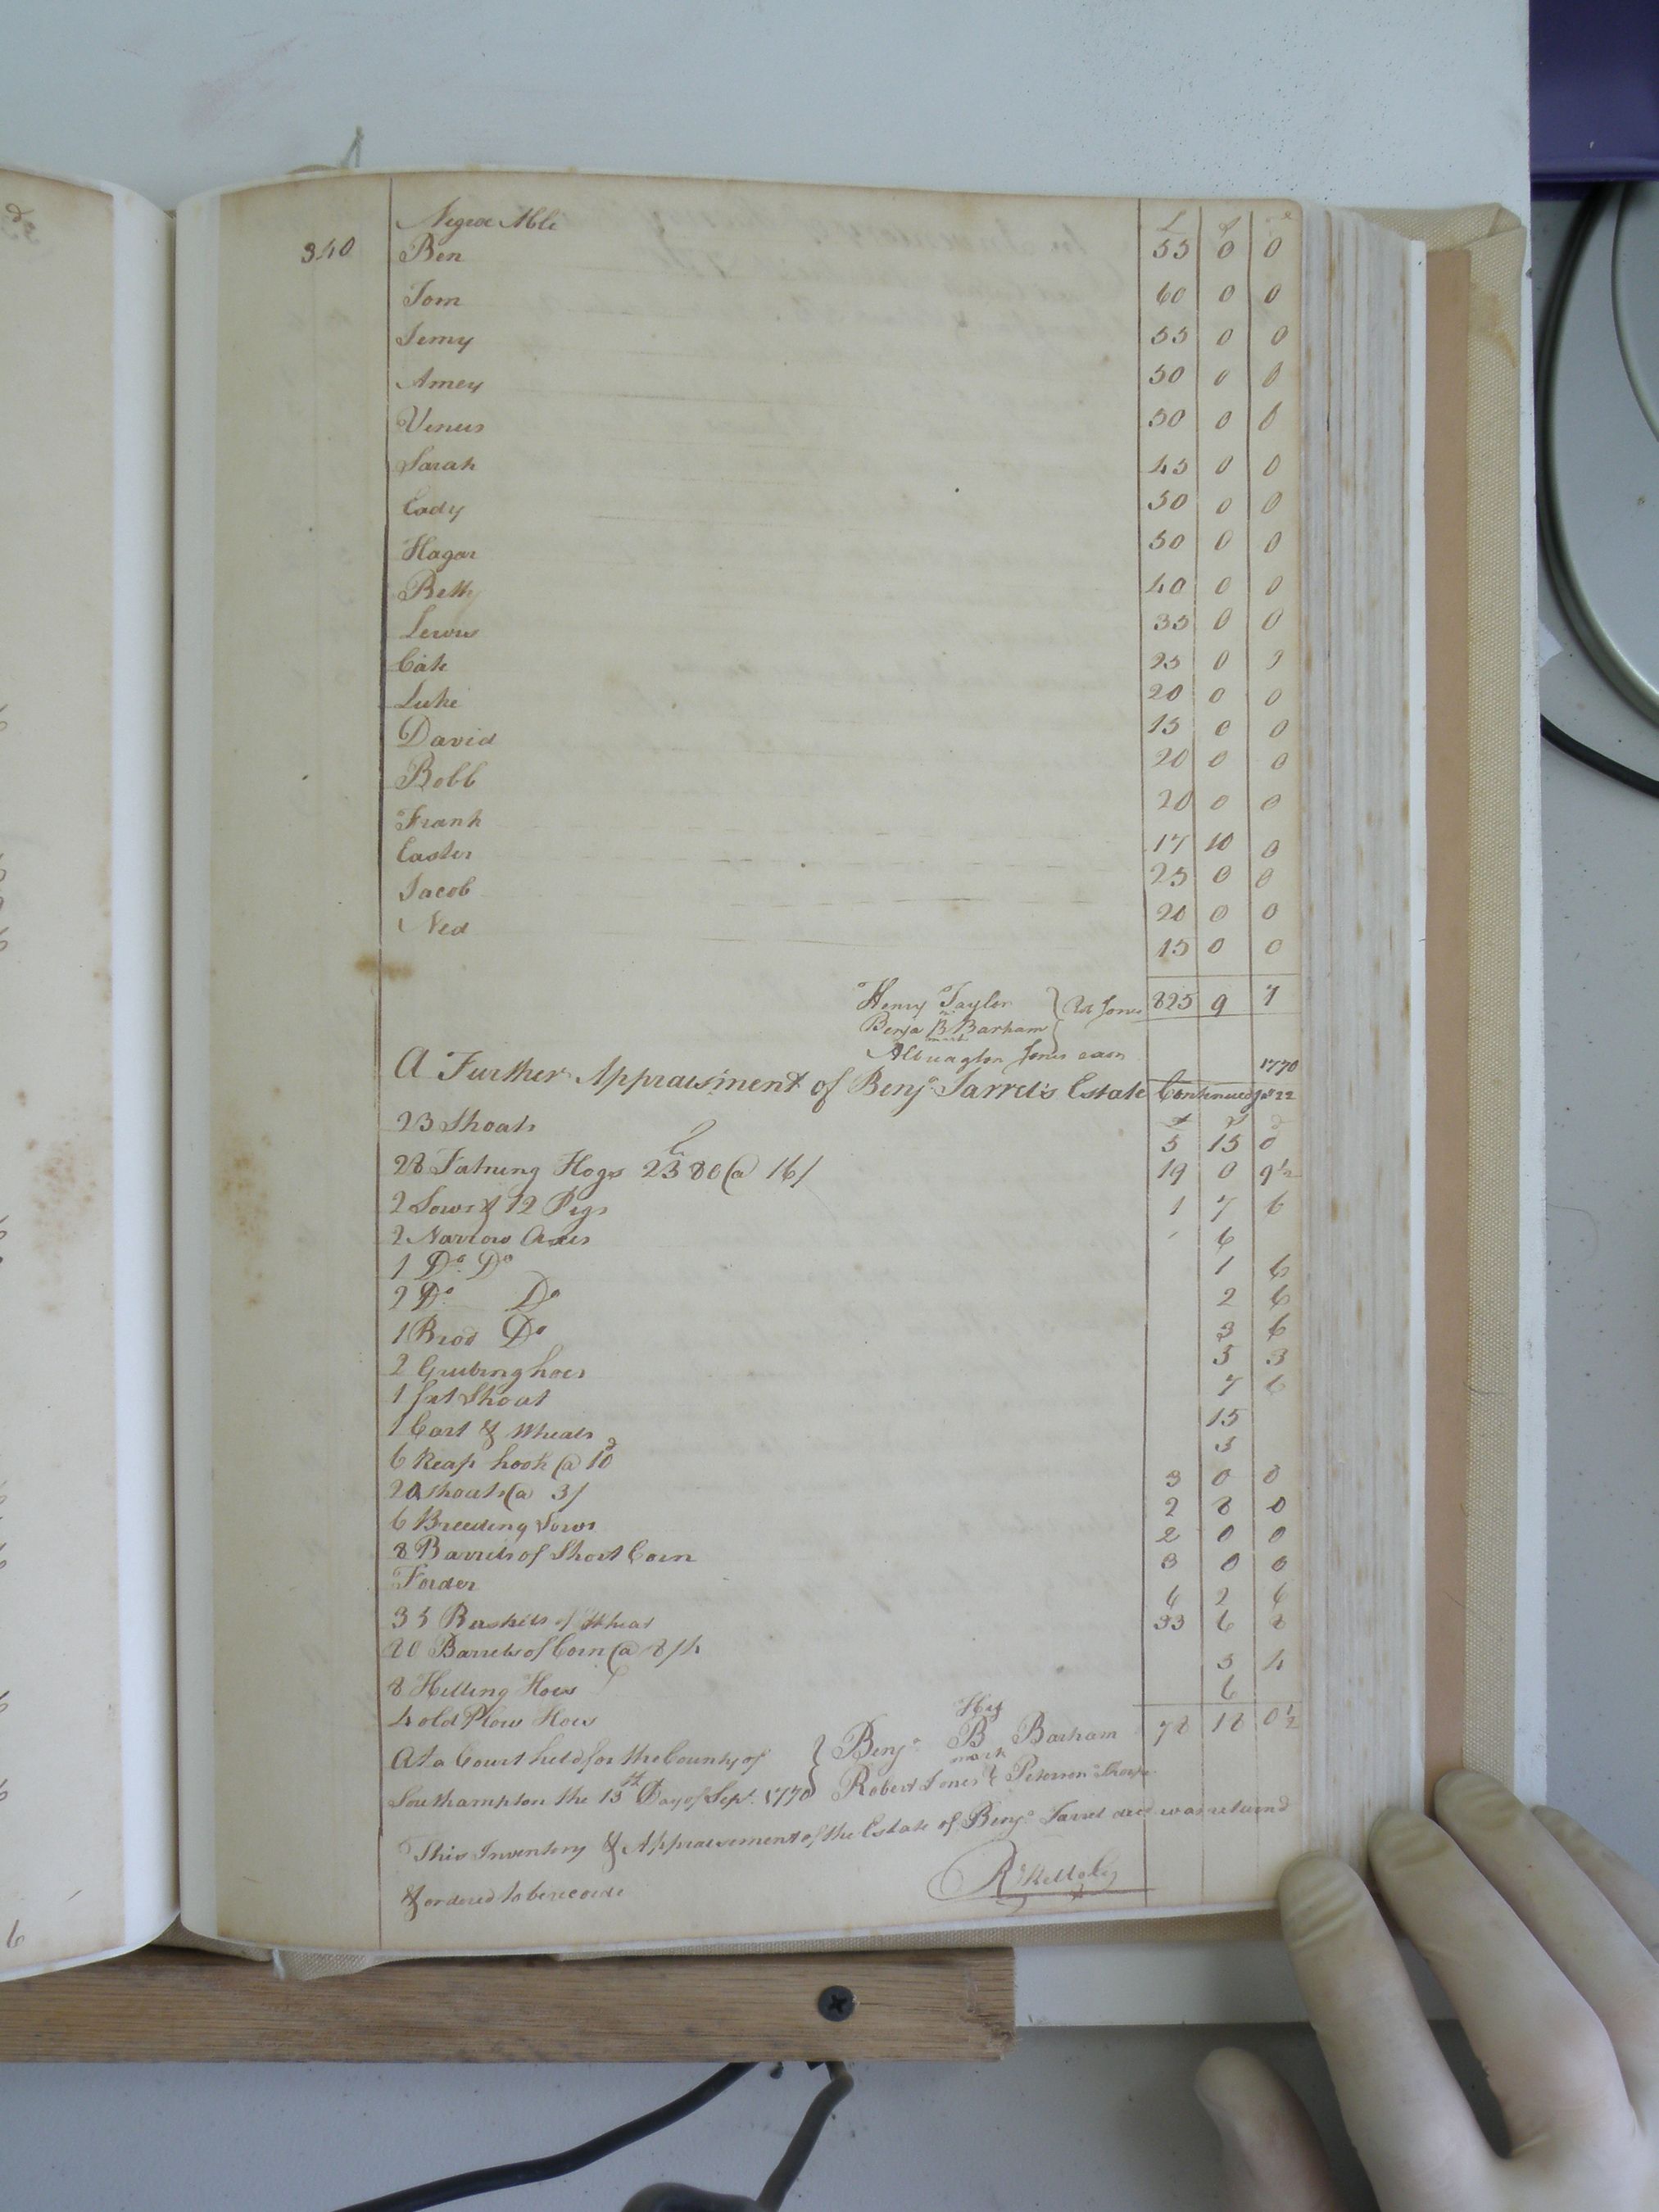 £ s d
Negroe Able 55 0 0
340 Ben 60 0 0
Tom 55 0 0
Jemy 50 0 0
Amey 50 0 0
Venus 45 0 0
Sarah 50 0 0
Cady 50 0 0
Hagar 40 0 0
Beth 35 0 0
Lewis 25 0 0
Cate 20 0 0
Luke 15 0 0
David 20 0 0
Bobb 20 0 0
Frank 17 10 0
Easter 25 0 0
Jacob 20 0 0
Ned 15 0 0
Henry Taylor } Rob Jones 825 9 7
Benja B Barham
mark
Jones
1770
A Further Appraisment of Benja Jarrel's Estate Continued 22
£ s d
23 Shoats 5 15 0
28 Fatning Hogs 2380 @ 16/ 19 0 9½
2 Sows & 12 Pigs 1 7 6
2 Narrow Axes 6
1 Do Do 1 6
2 Do Do 2 6
1 Brod Do 3 6
2 Grubing hoes 5 3
1 fat Shoat 7 6
1 Cart & Wheals 15
6 Reap hook @ 10d 5
20 Shoats @ 3/ 3 0 0
6 Breeding Sows 2 8 0
8 Barrels of Short Corn 2 0 0
Foder 3 0 0
35 Baskets of Wheat 6 2 6
80 Barrels of Corn @ 8/4 33 6 8
8 Hilling Hoes 5 4
4 old Plow Hoes 6
78 18 0½
His
At a Court held for the County of } Benja B Barham
mark
Southampton the 13th Day of Sept. 1770 } Robert Jones & Peterson Thorpe
This Inventory & Appraisement of the Estate of Benja Jarrel decd was returnd
& ordered to be recorde
R Kello